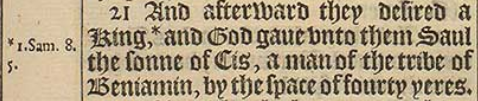 21 And afterward they desired a
*1.Sam. 8.
5.
King,* and God gaue vnto them Saul
the sonne of Cis, a man of the tribe of
Beniamin, by the space of fourty yeres.